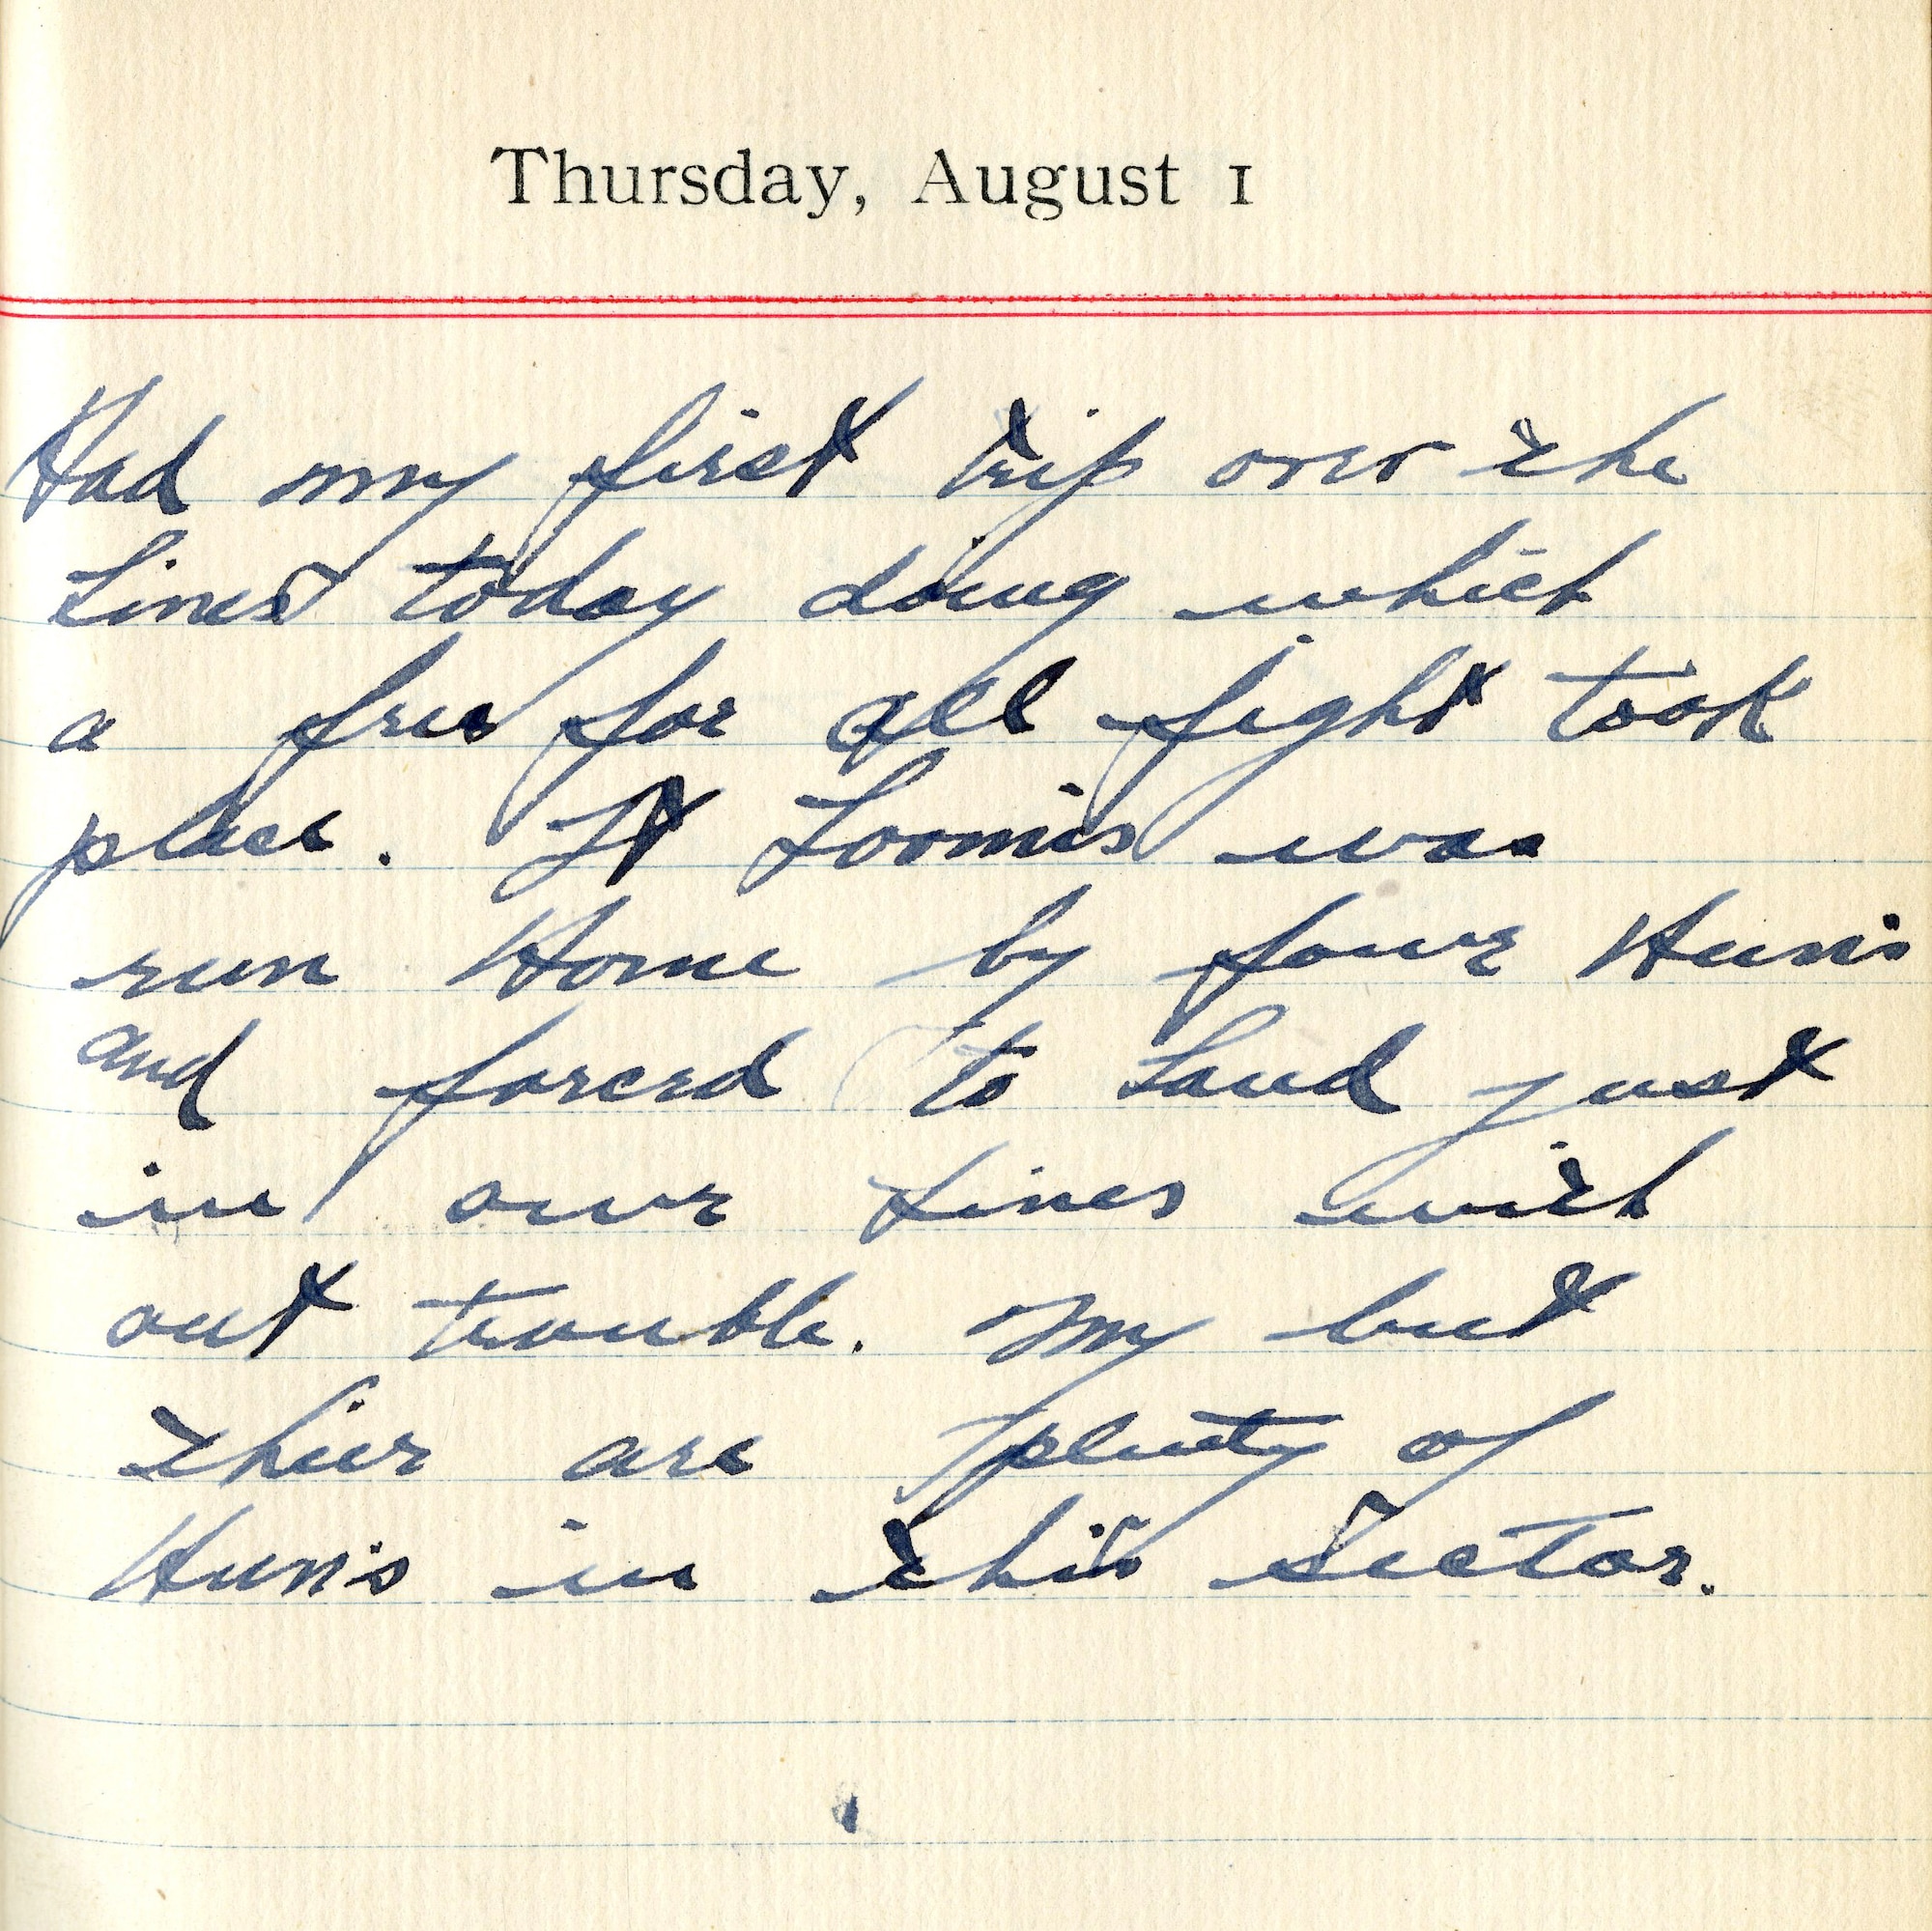 Thursday, August 1
Had my first trip over the
Lines today doing which
a free for all fight took
place. Lt Loomis was
run Home by four Hun's
and forced to Land just
in our Lines with
out trouble. My but
thier are plenty of
Hun's in this Sector.